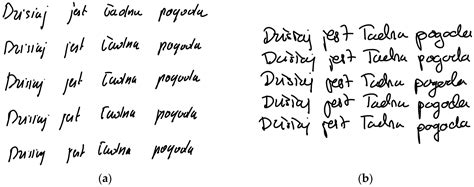 Dzisiaj jest ładna pogoda
Dzisiaj jest ładna pogoda
Dzisiaj jest ładna pogoda
Dzisiaj jest ładna pogoda
Dzisiaj jest ładna pogoda
(a)
Dzisiaj jest Ładna pogoda
Dzisiaj jest Ładna pogoda
Dzisiaj jest Ładna pogoda
Dzisiaj jest Ładna pogoda
Dzisiaj jest Ładna pogoda
(b)